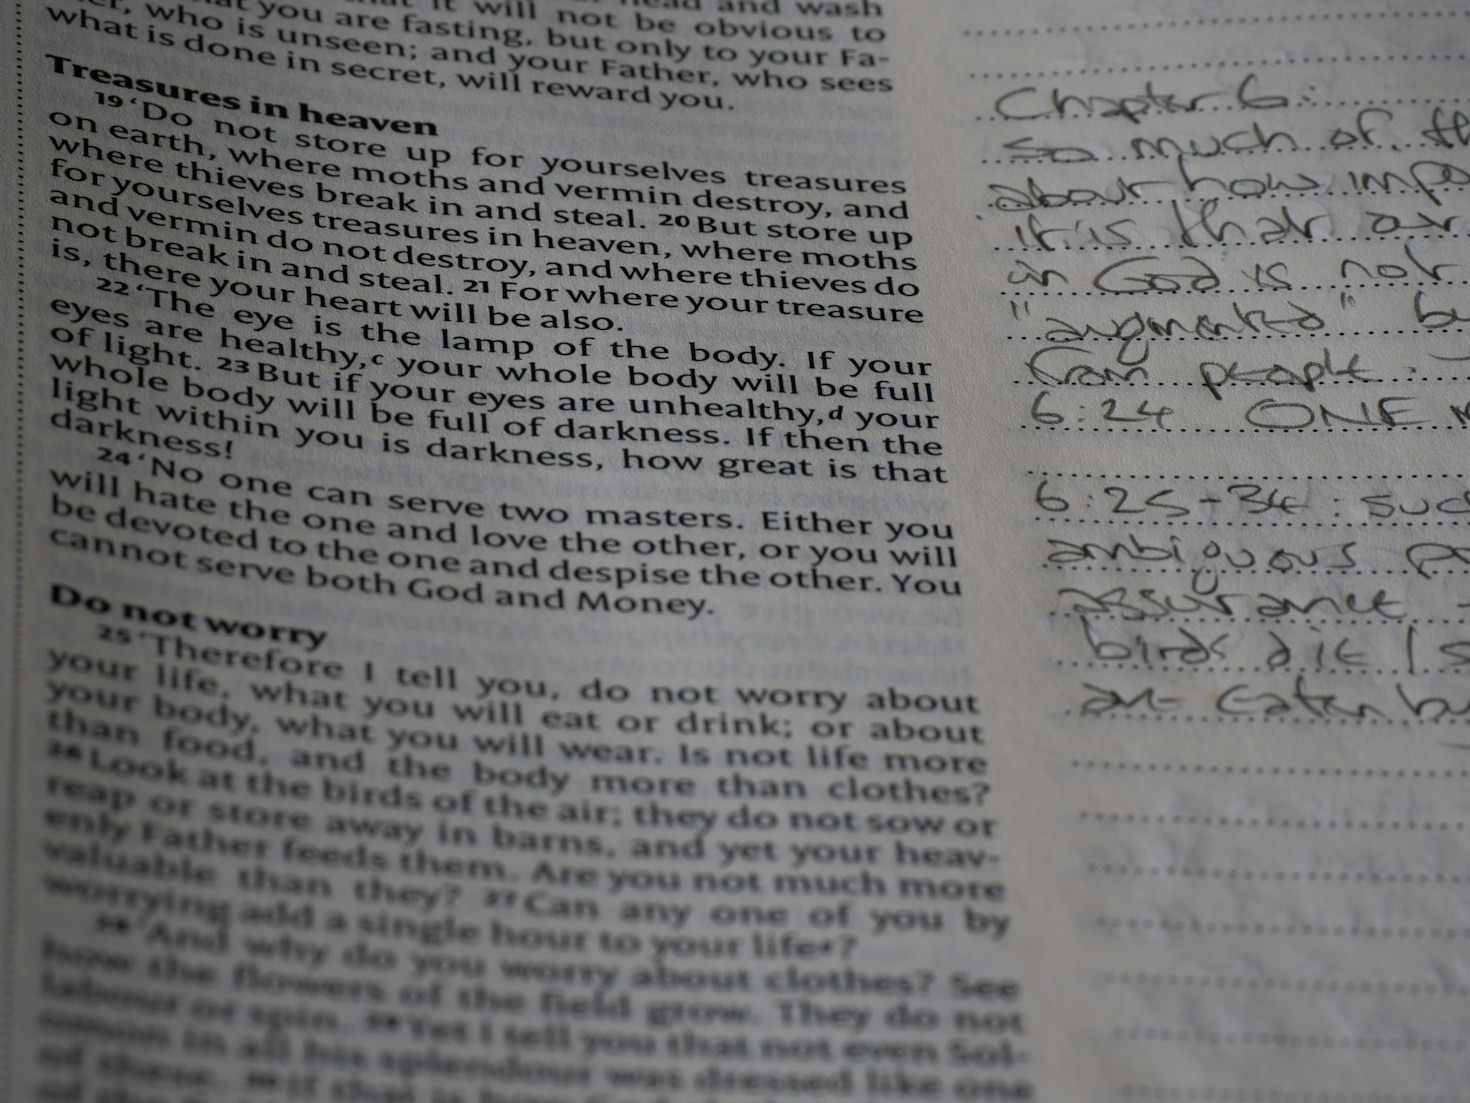 head and wash
it will not be obvious to
you are fasting, but only to your Fa-
who is unseen; and your Father, who sees
what is done in secret, will reward you.
Treasures in heaven
19 ‘Do not store up for yourselves treasures
on earth, where moths and vermin destroy, and
where thieves break in and steal. 20 But store up
for yourselves treasures in heaven, where moths
and vermin do not destroy, and where thieves do
not break in and steal. 21 For where your treasure
is, there your heart will be also.
22 ‘The eye is the lamp of the body. If your
eyes are healthy,c your whole body will be full
of light. 23 But if your eyes are unhealthy,d your
whole body will be full of darkness. If then the
light within you is darkness, how great is that
darkness!
24 ‘No one can serve two masters. Either you
will hate the one and love the other, or you will
be devoted to the one and despise the other. You
cannot serve both God and Money.
Do not worry
25 ‘Therefore I tell you, do not worry about
your life, what you will eat or drink; or about
your body, what you will wear. Is not life more
than food, and the body more than clothes?
26 Look at the birds of the air; they do not sow or
reap or store away in barns, and yet your heav-
enly Father feeds them. Are you not much more
valuable than they? 27 Can any one of you by
worrying add a single hour to your life e?
28 ‘And why do you worry about clothes? See
how the flowers of the field grow. They do not
labour or spin. 29 Yet I tell you that not even Sol-
omon in all his splendour was dressed like one
of these. 30 If that is how God
Chapter 6:
so much of th
about how impo
it is that our
in God is not
"augmented" bu
from people.
6:24 ONE M
6:25-34: suc
ambiguous pr
assurance -
birds die Is
are eaten bu